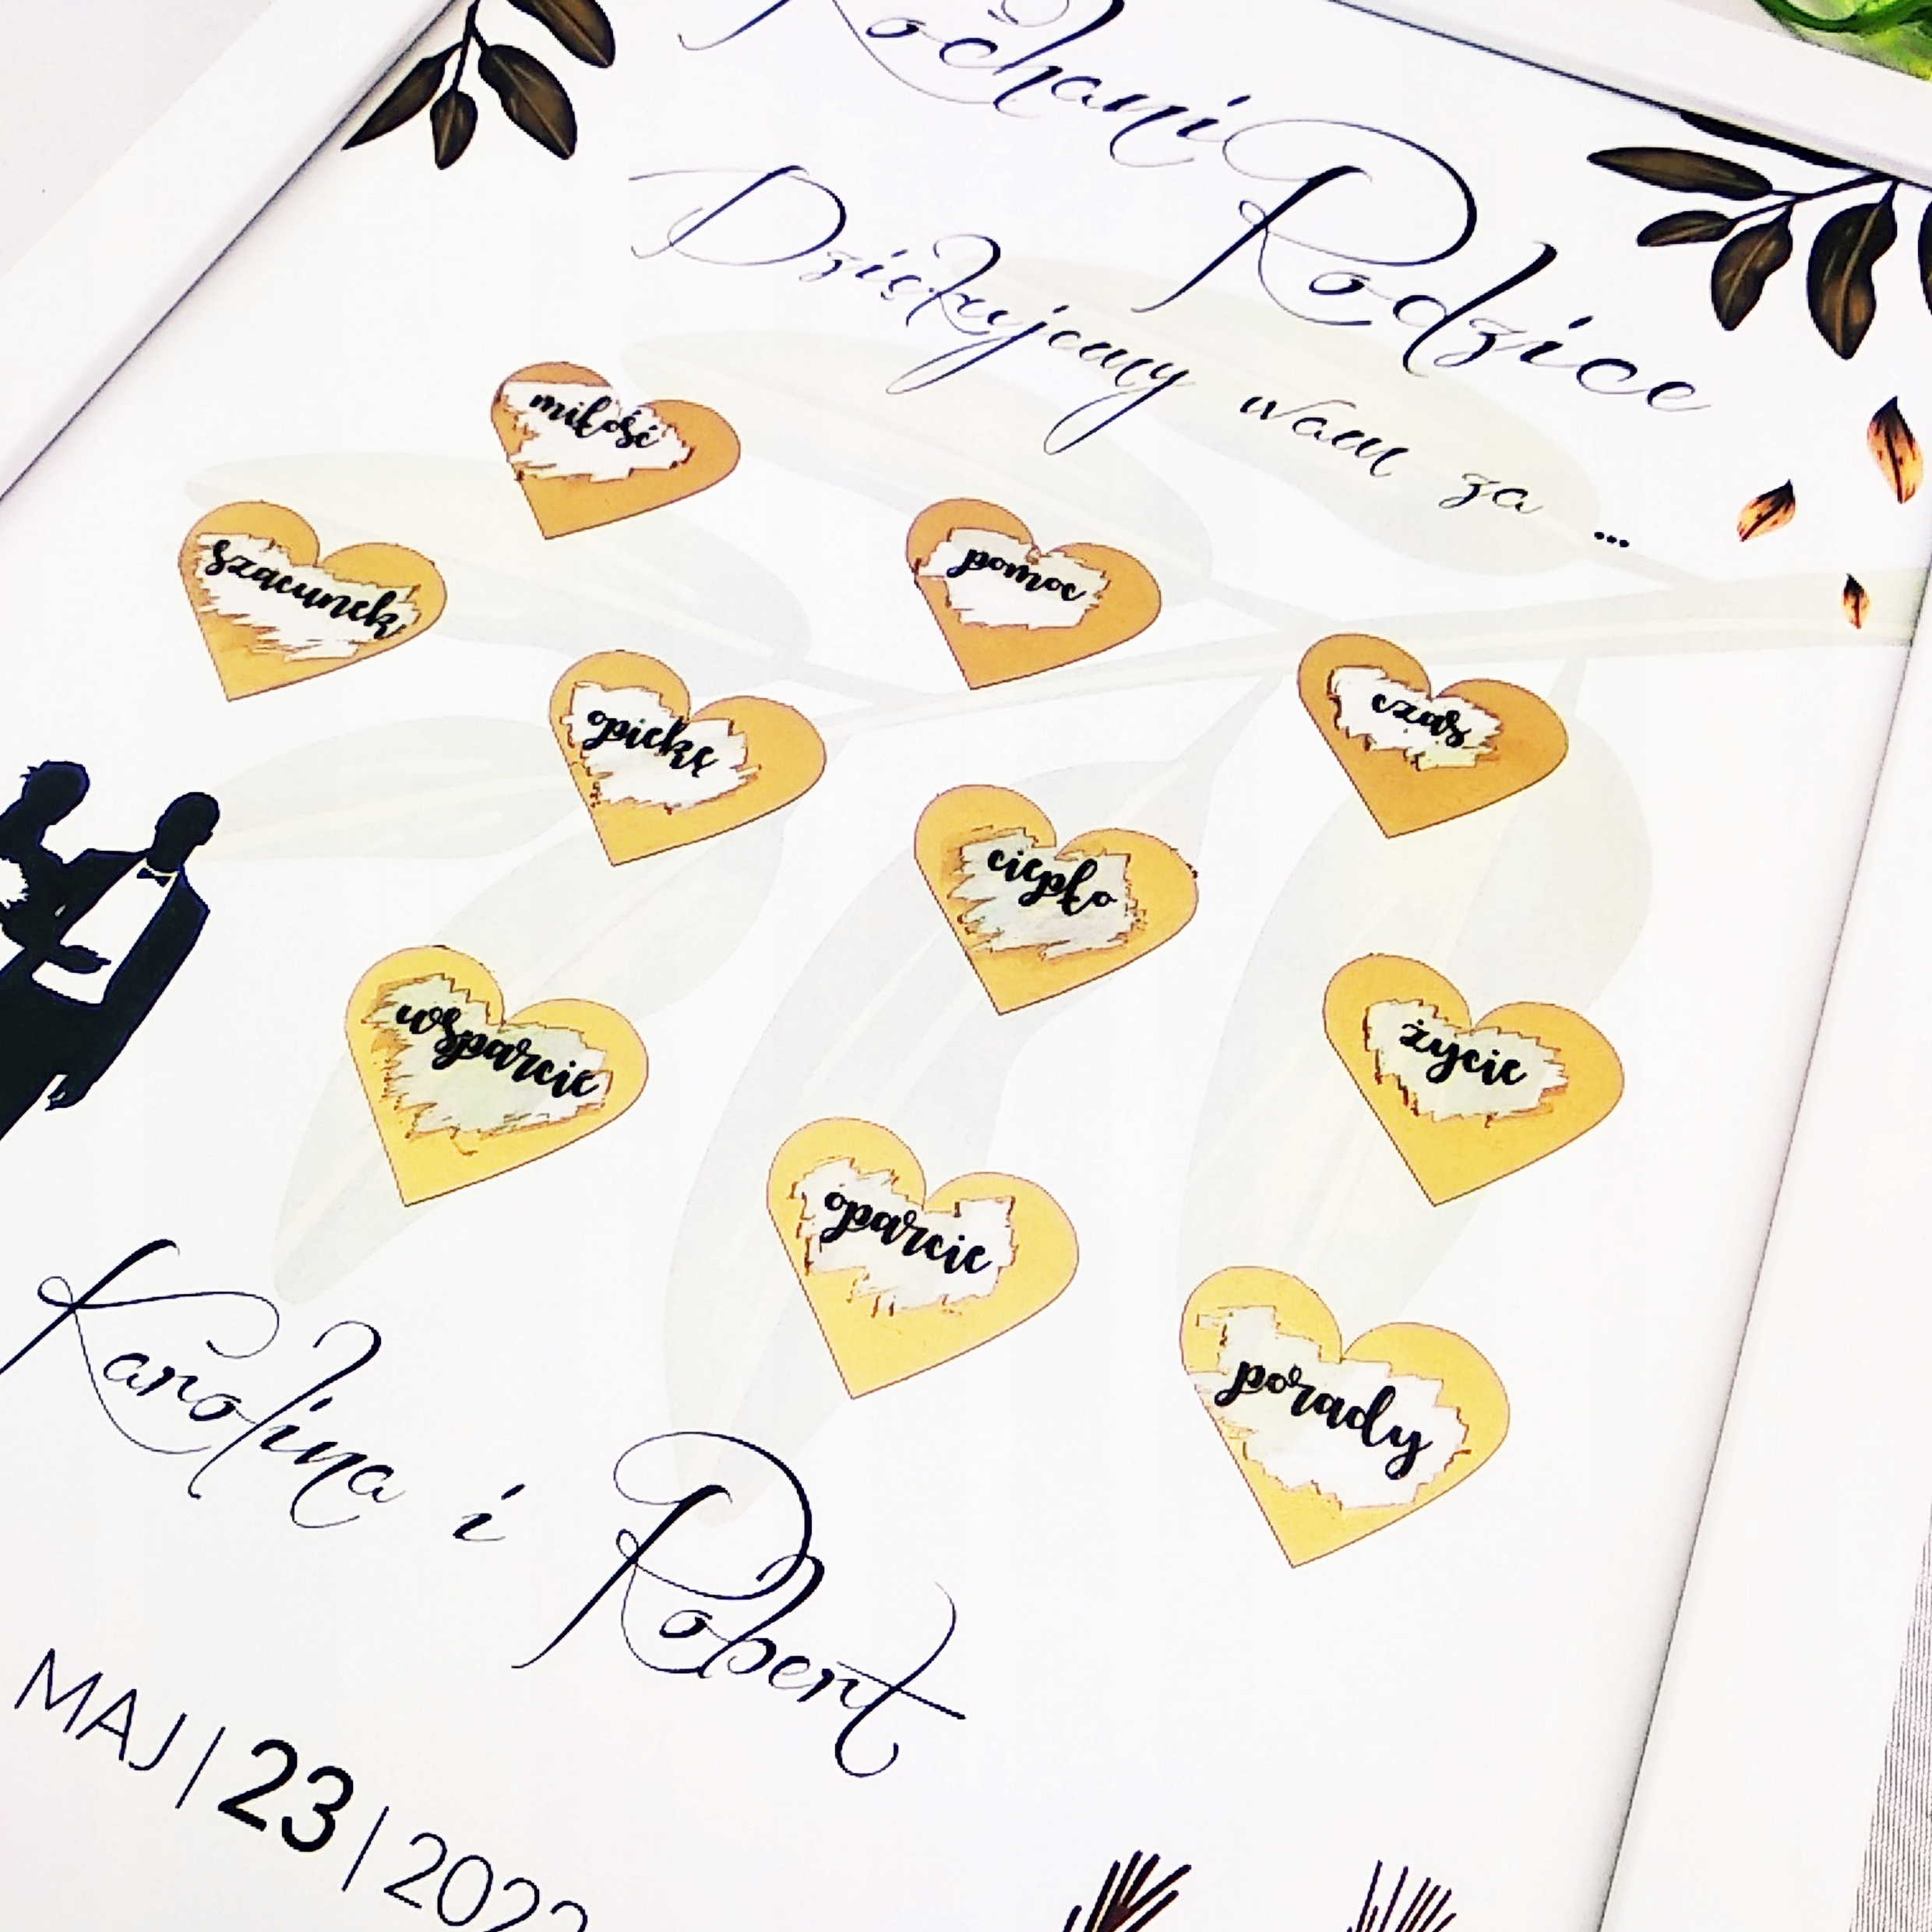 Kochani Rodzice
Dziękujemy wam za ...
miłość
szacunek
pomoc
opiekę
czas
ciepło
wsparcie
życie
oparcie
porady
Karolina i Robert
MAJ | 23 | 2022